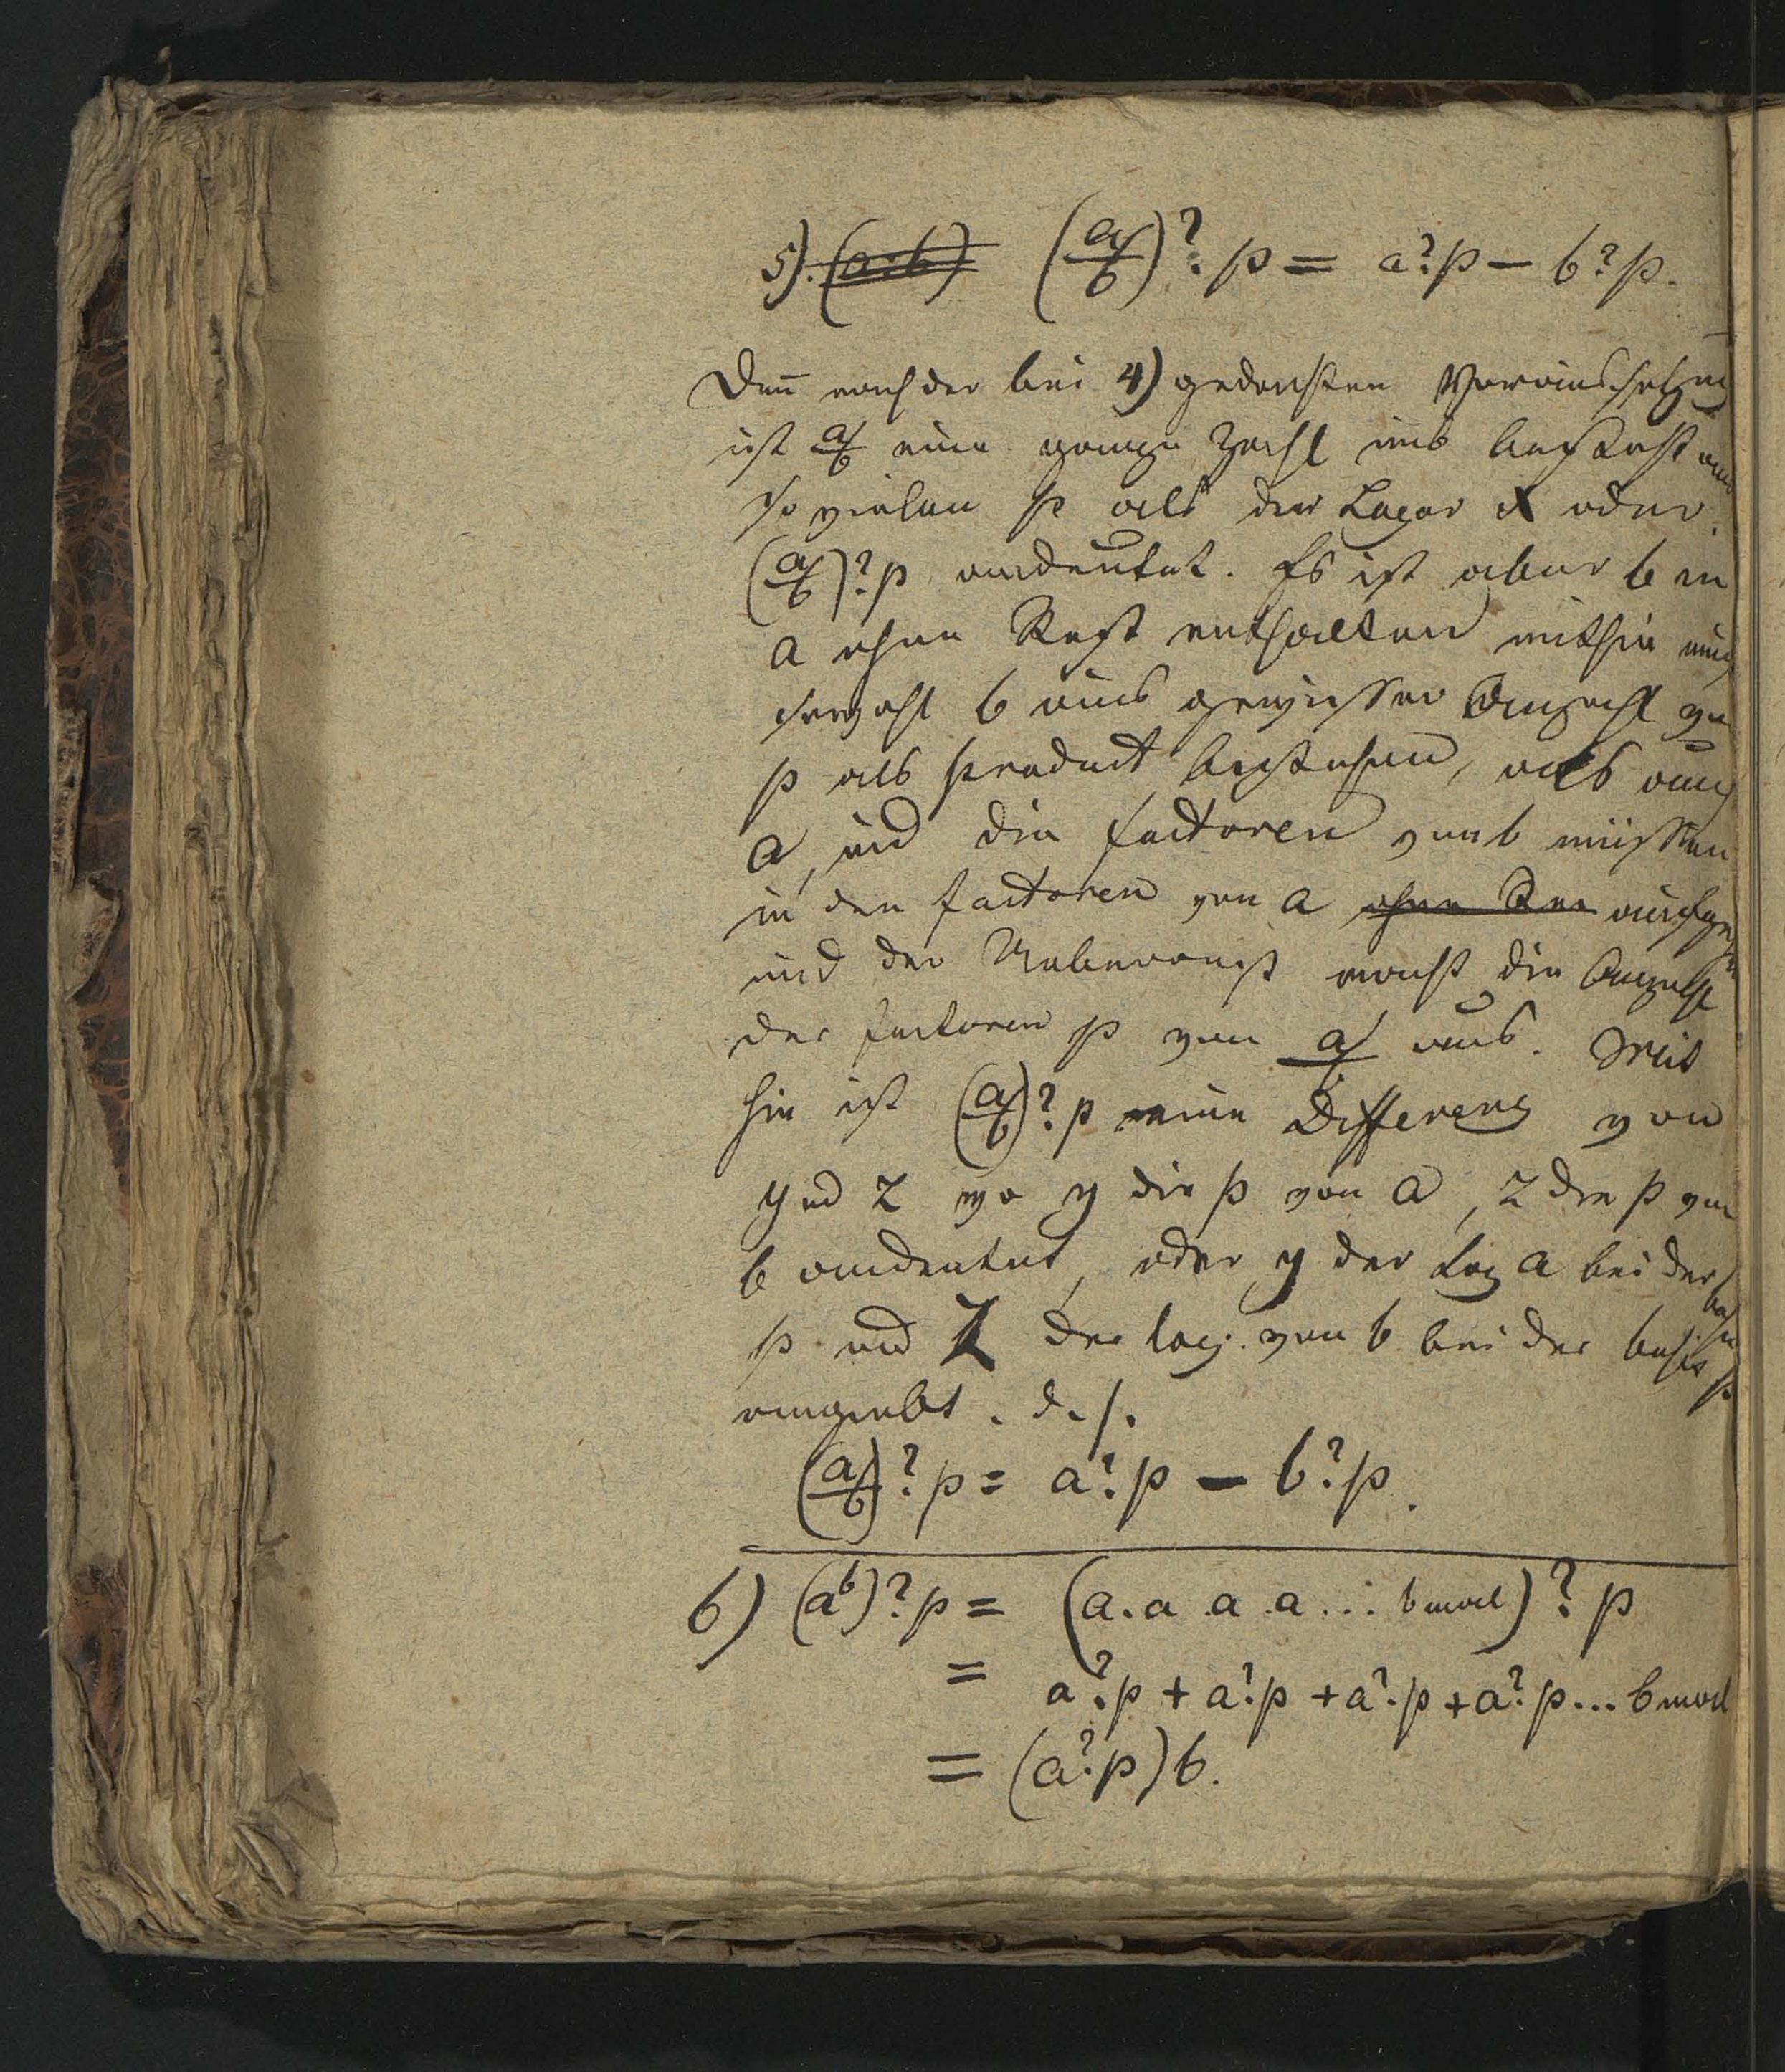 5). (a:b) (a/b)?p = a?p – b?p.
Den̅ nach der bei 4) gedachten Voraussetzung
ist a/b eine ganze Zahl und besteht aus
so vielen p als der Logar x oder
(a/b)?p andeutet. Es ist aber b in
a ohne Rest enthalten mithin muß
sowohl b aus gewisser Anzahl von
p als product bestehen, als auch
a, und die factoren von b müssen
in den factoren von a ohne Res aufgehen
und der Ueberrest macht die Anzahl
der factoren p von a/b aus. Mit
hin ist (a/b)?p eine Differenz von
y und z wo y die p von a, z die p von
b andeutet, oder y der Log a bei der basis
p und z der log. von b bei der basis p
angiebt. d. h.
(a/b)?p = a?p – b?p.
6) (a^b)?p = (a.a.a.a... b mal)?p
= a?p + a?p + a?p + a?p... b mal
= (a?p)b.